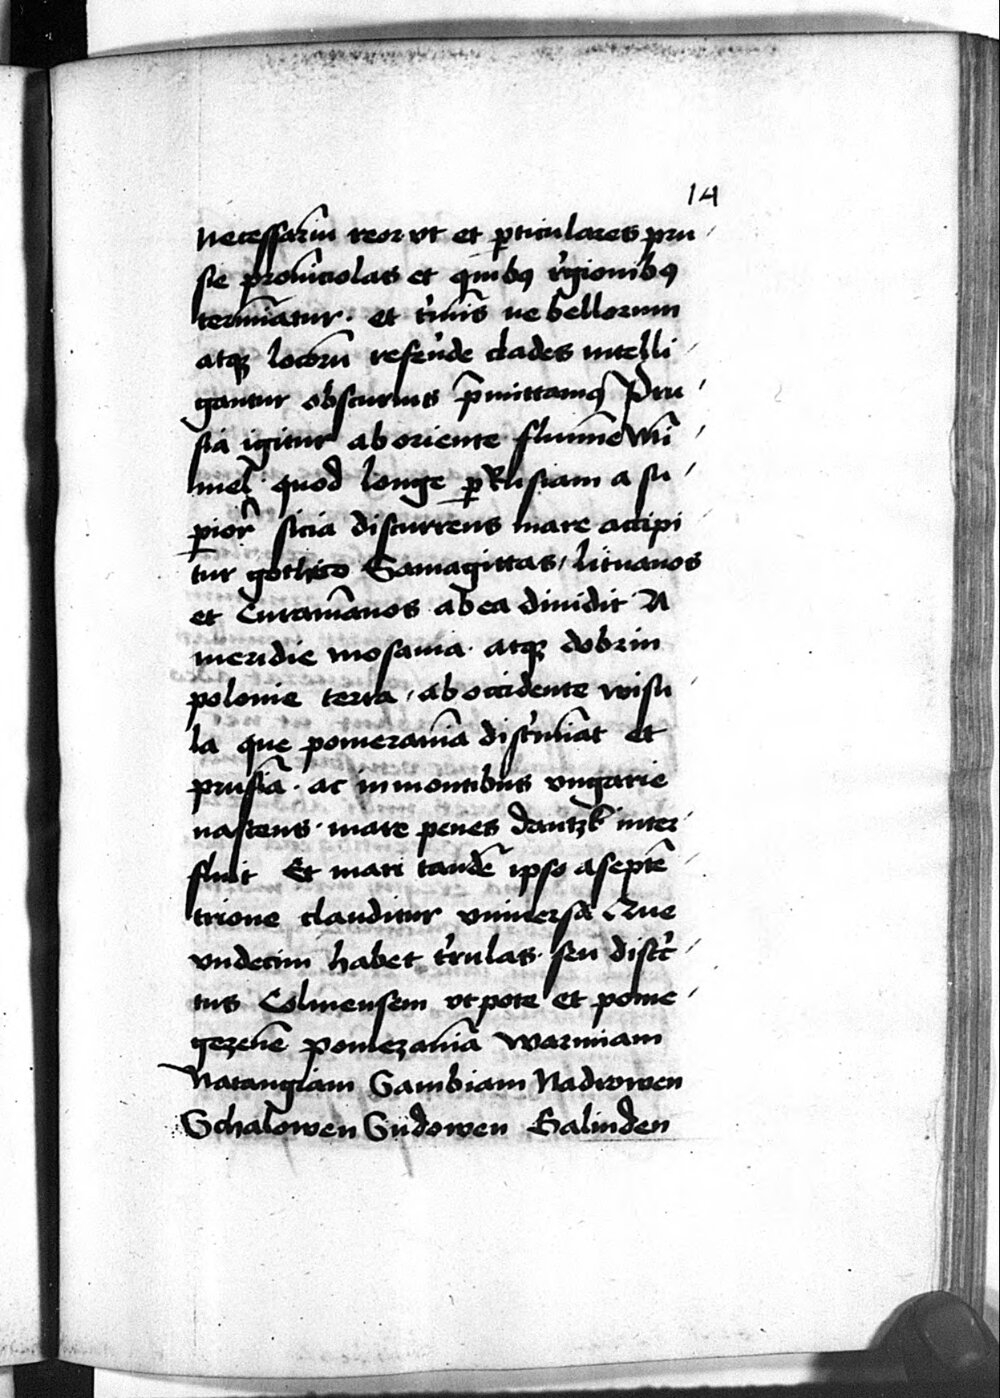 14
necessariu͞ reor vt et ꝑticulares pru
sie prouīciolas et quibꝯ r̾gionibꝯ
termīatur· et t̾mīs ne bellorum
atqꝫ locoru͞ refe͞nde clades intelli
gantur obscurius p̄mittamꝯ Pru
sia igitur ab oriente flumīe Mi͞
mel· quod longe ꝑ Rusiam a su
ꝑior̾ sicia discurrens mare accipi
tur gothico Samagittas / lituanos
et Curamānos ab ea diuidit A
meridie mosauia· atqꝫ dobrin
polonie terra / ab occidente visu
la que pomeranīa dist̾mīat et
prusia͞· ac in montibus vngarie
nascens· mare penes dantzk inter
fluit Et mari tande͞ ipso a septe͞
trione clauditur vniuersa Que
vndecim habet t̾rulas· seu distc̾
tus Colmensem vtpote et pome
gezene͞ pomezania͞ warmiam
Natangiam Sambiam Nadrowen
Schalowen Sudowen Galinden